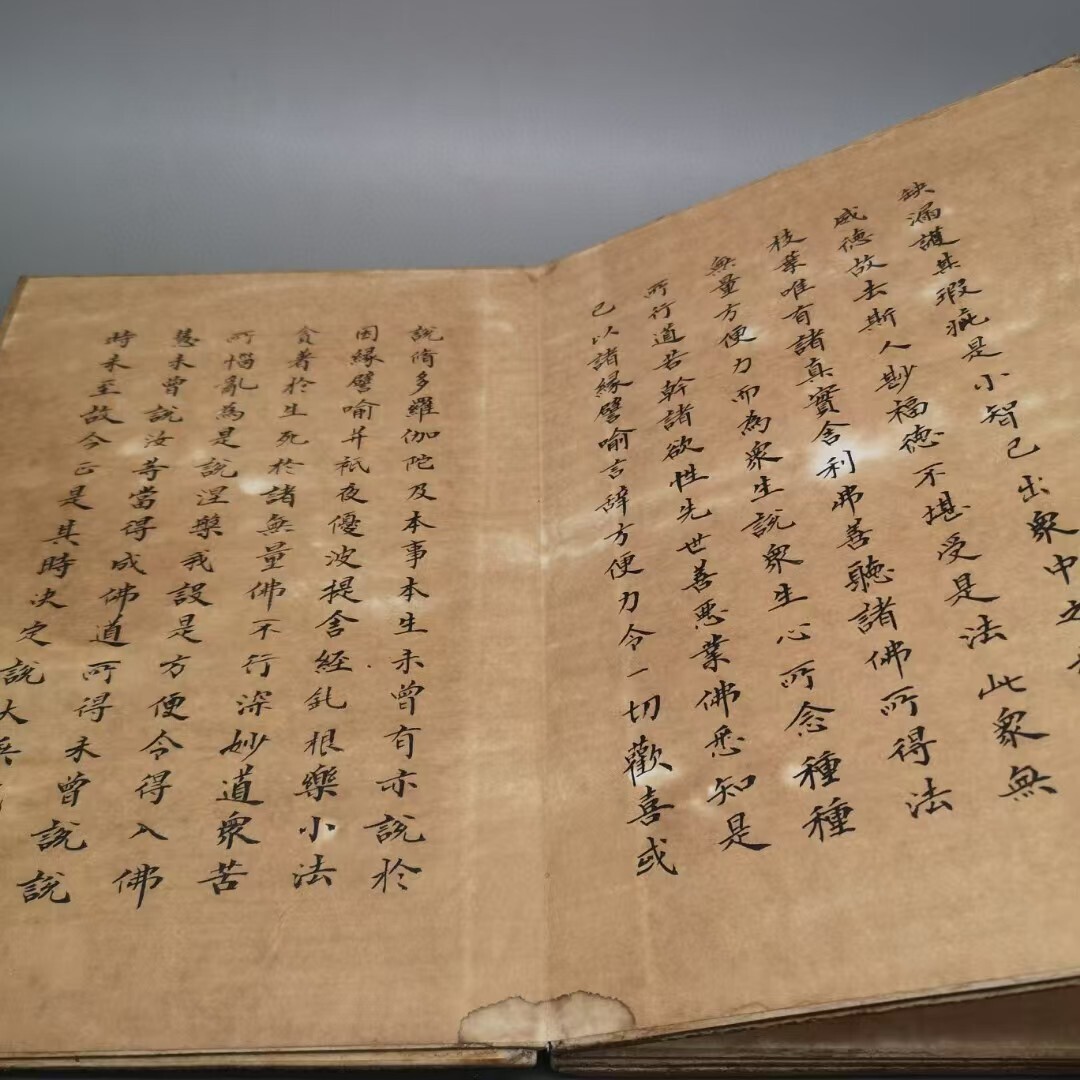 缺漏護其瑕疵是小智已出衆中之
威德故去斯人尠福德不堪受是法此衆無
枝葉唯有諸真實舍利弗善聽諸佛所得法
無量方便力而為衆生說衆生心所念種種
所行道若幹諸欲性先世善惡業佛悉知是
已以諸緣譬喻言辭方便力令一切歡喜或
說脩多羅伽陀及本事本生未曾有亦說於
因緣譬喻并祇夜優波提舍經釓根樂小法
貪著於生死於諸無量佛不行深妙道衆苦
所惱亂為是說涅槃我設是方便令得入佛
慧未曾說汝等當得成佛道所得未曾說說
時未至故今正是其時决定說大